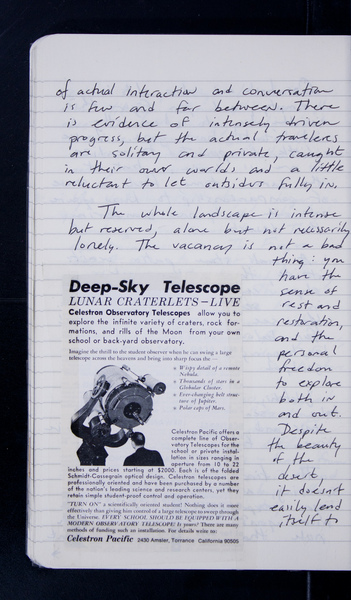 of actual interaction and conversation
is few and far between. There
is evidence of intensely driven
progress, but the actual travelers
are solitary and private, caught
in their own worlds and a little
reluctant to let outsiders fully in.
The whole landscape is intense
but reserved, alone but not necessarily
lonely. The vacancy is not a bad
thing: you
have the
sense of
rest and
restoration,
and the
personal
freedom
to explore
both in
and out.
Despite
the beauty
of the
desert,
it doesn't
easily lend
itself to
Deep-Sky Telescope
LUNAR CRATERLETS—LIVE
Celestron Observatory Telescopes allow you to
explore the infinite variety of craters, rock for-
mations, and rills of the Moon from your own
school or back-yard observatory.
Imagine the thrill to the student observer when he can swing a large
telescope across the heavens and bring into sharp focus the —
Wispy detail of a remote
Nebula.
Thousands of stars in a
Globular Cluster.
Ever-changing belt struc-
ture of Jupiter.
Polar caps of Mars.
Celestron Pacific offers a
complete line of Obser-
vatory Telescopes for the
school or private instal-
lation in sizes ranging in
aperture from 10 to 22
inches and prices starting at $2000. Each is of the folded
Schmidt-Cassegrain optical design. Celestron telescopes are
professionally oriented and have been purchased by a number
of the nation's leading science and research centers, yet they
retain simple student-proof control and operation.
"TURN ON" a scientifically oriented student! Nothing does it more
effectively than giving him control of a large telescope to sweep through
the Universe. EVERY SCHOOL SHOULD BE EQUIPPED WITH A
MODERN OBSERVATORY TELESCOPE! Is yours? There are many
methods of funding such an installation. For details write to:
Celestron Pacific 2430 Amsler, Torrance California 90505